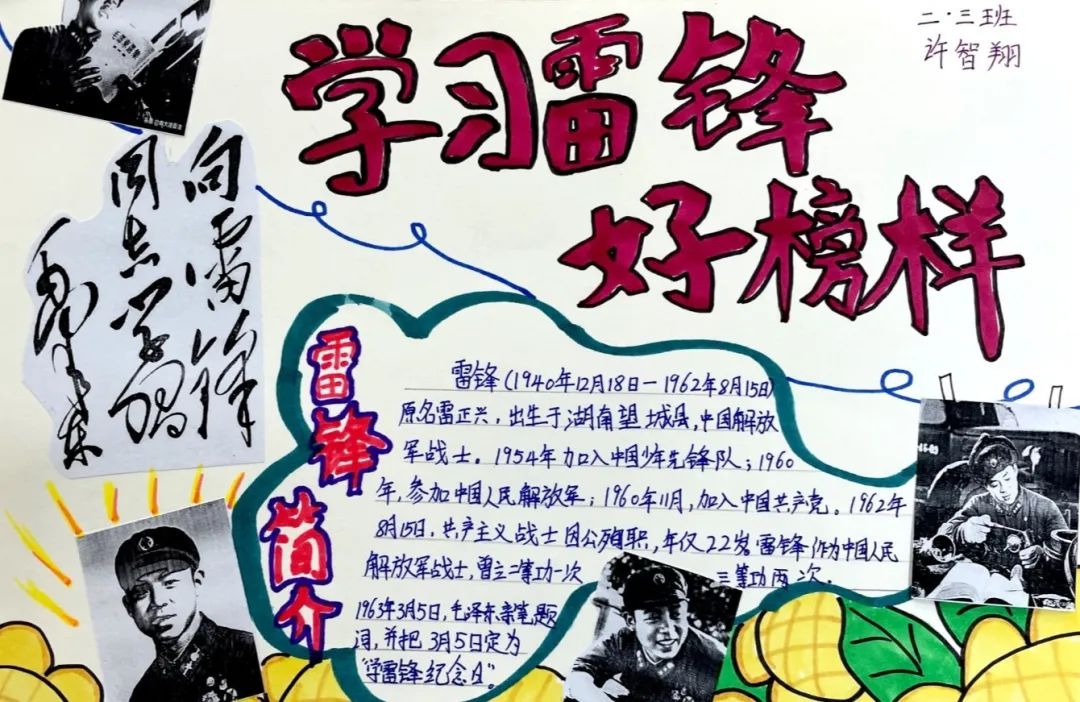 二·三班
许智翔
学习雷锋
好榜样
向雷锋
同志学习
毛泽东
雷锋简介
雷锋(1940年12月18日—1962年8月15日)
原名雷正兴,出生于湖南望城县,中国解放
军战士。1954年加入中国少年先锋队;1960
年,参加中国人民解放军;1960年11月,加入中国共产党。1962年
8月15日,共产主义战士因公殉职,年仅22岁。雷锋作为中国人民
解放军战士,曾立二等功一次 三等功两次。
1963年3月5日,毛泽东亲笔题
词,并把3月5日定为
“学雷锋纪念日”。